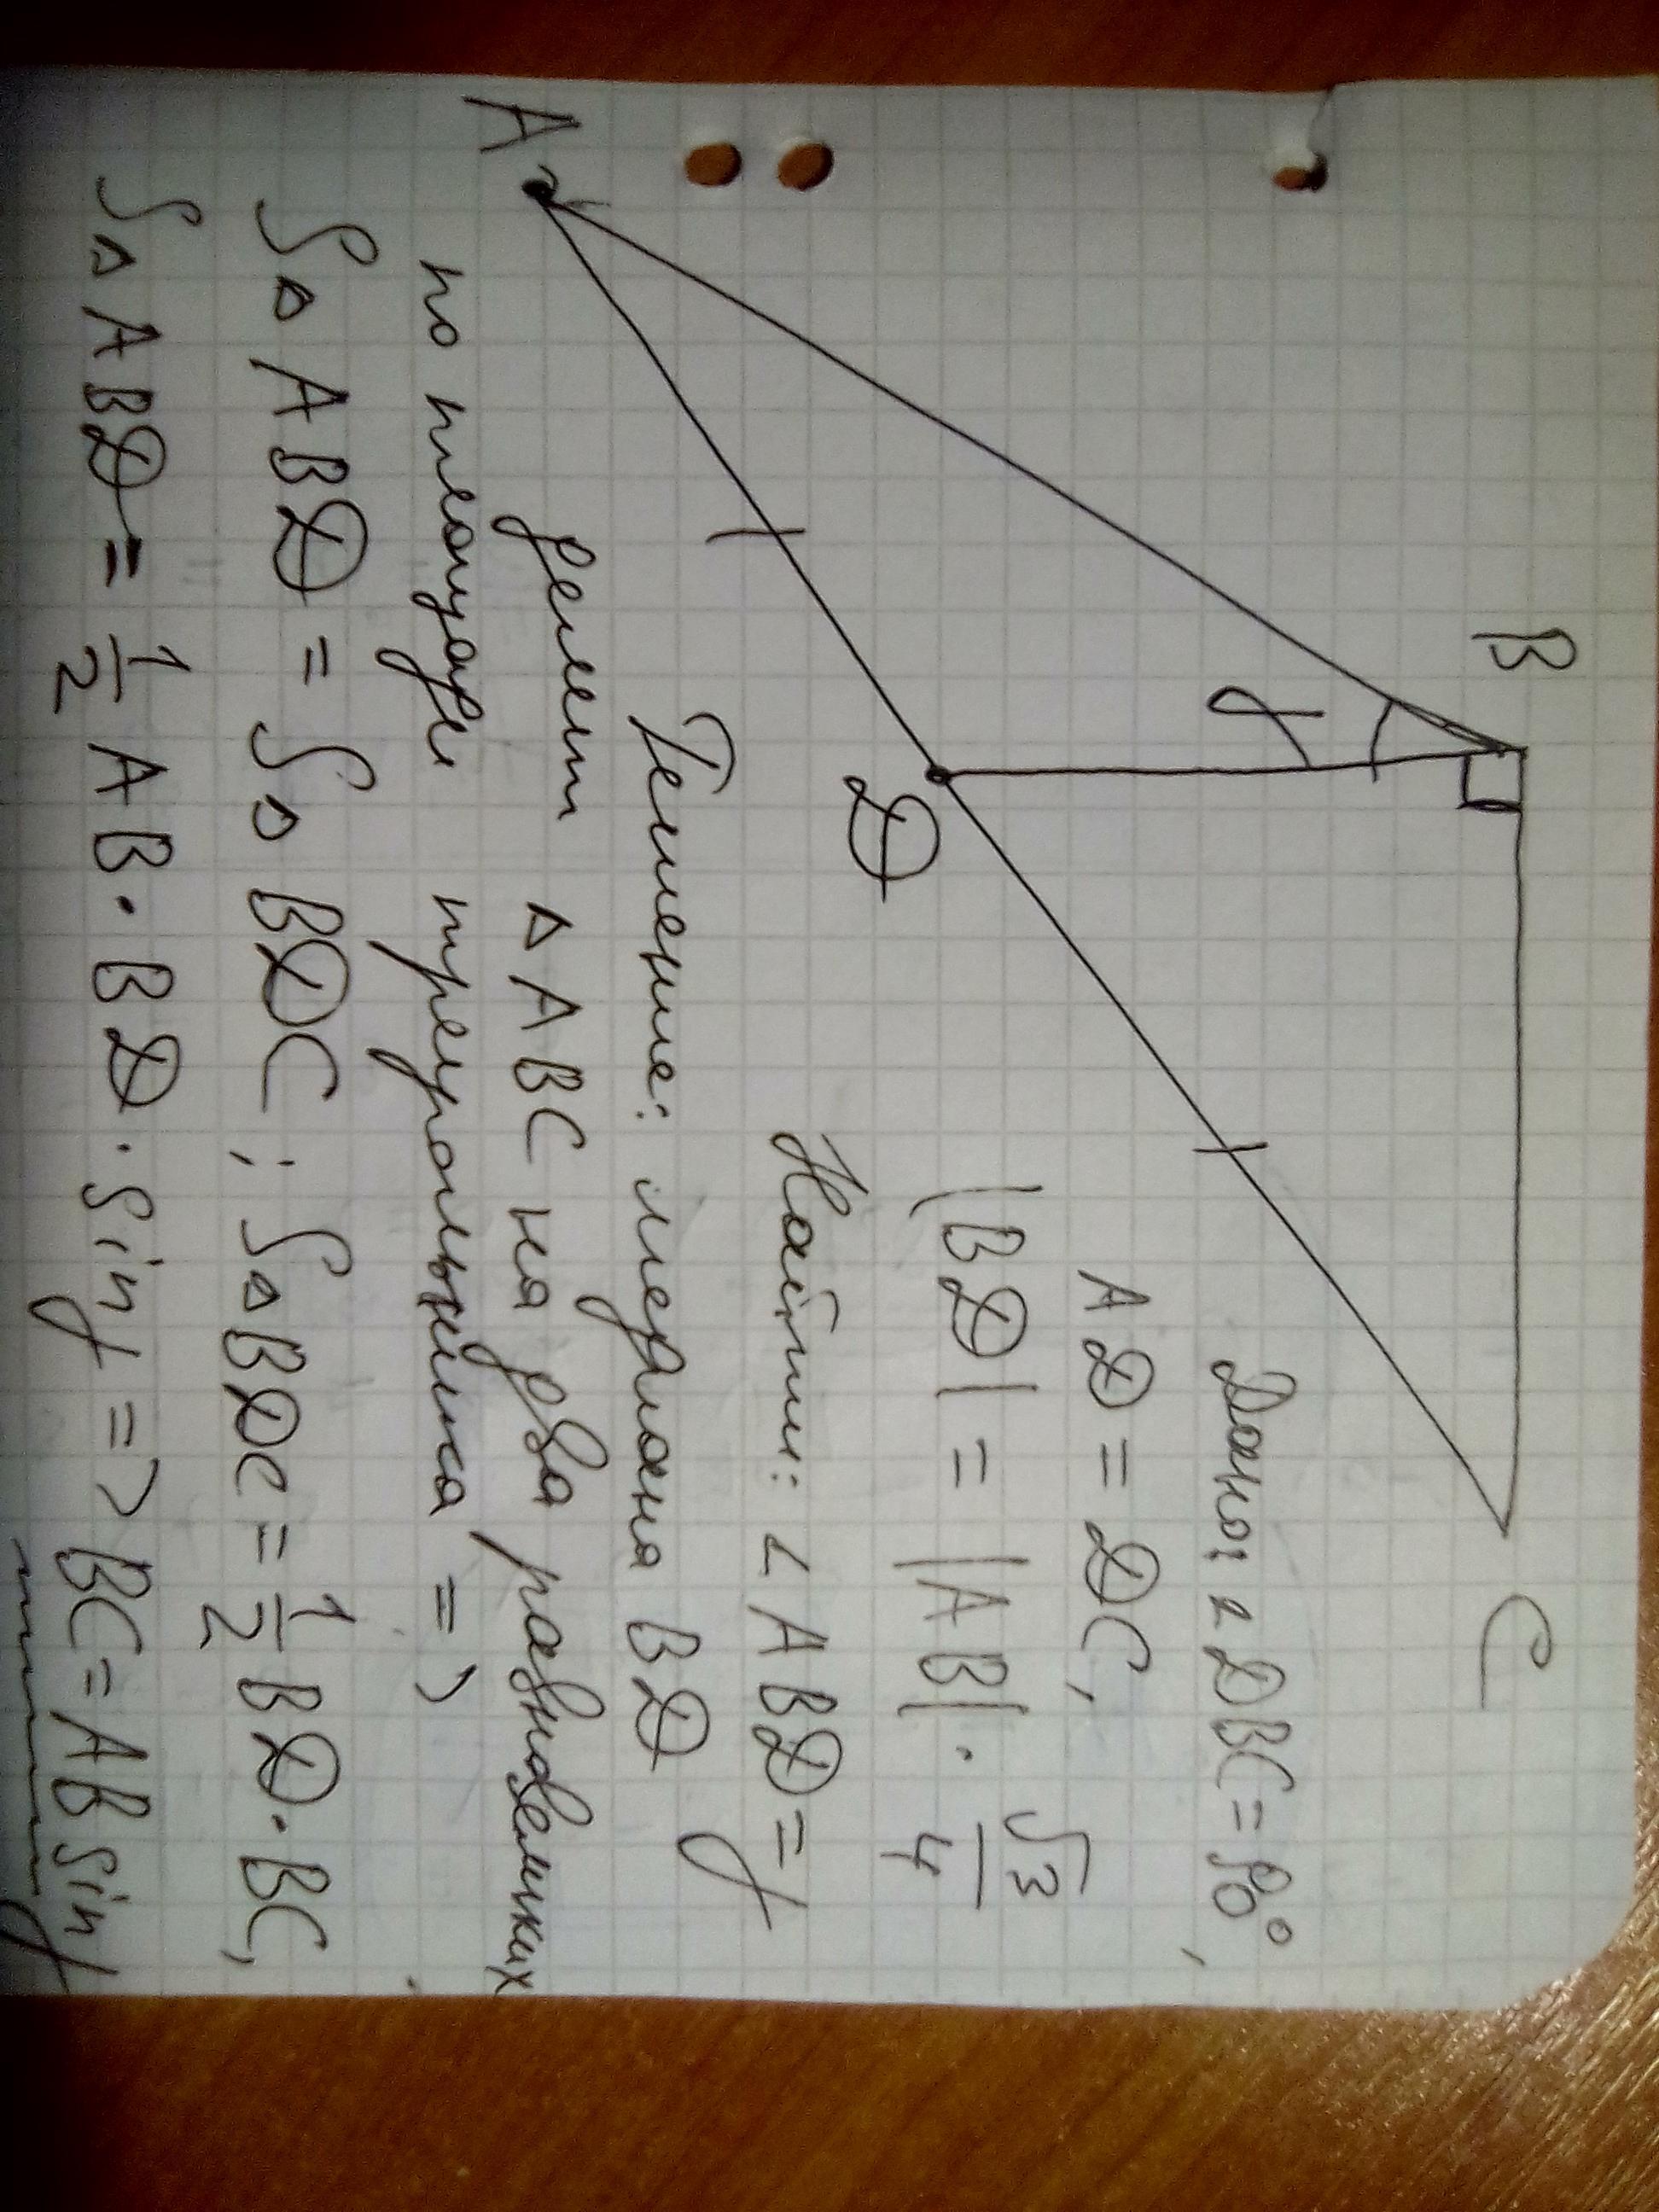 B
C
A
D
γ
Дано: ∠DBC = 90°,
AD = DC,
|BD| = |AB| · √3/4
Найти: ∠ABD = γ
Решение: медиана BD
делит △ABC на два равновеликих
по площади треугольника =>
S△ABD = S△BDC; S△BDC = 1/2 BD · BC,
S△ABD = 1/2 AB · BD · sin γ => BC = AB sin γ